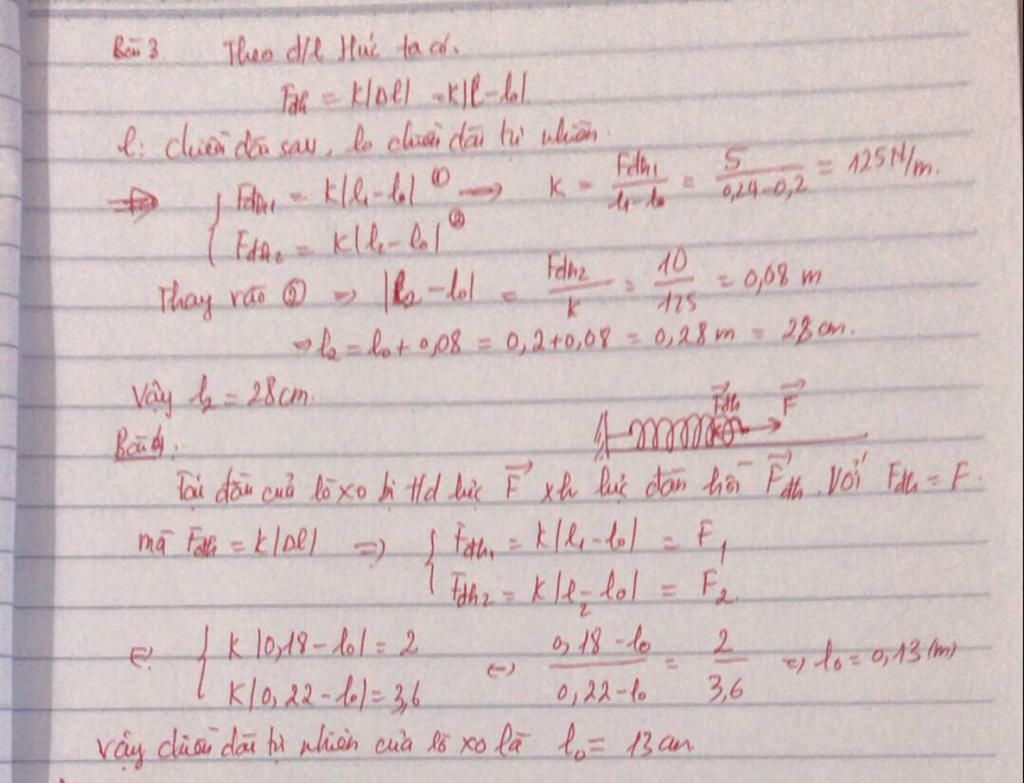 Bài 3 Theo đ/l Húc ta có.
Fđh = K|Δl| = K|l - l₀|
l: chiều dài sau, l₀ chiều dài tự nhiên.
=> { Fđh₁ = K|l₁ - l₀| ① → K = Fđh₁ / (l₁ - l₀) = 5 / (0,24 - 0,2) = 125 N/m.
Fđh₂ = K|l₂ - l₀| ②
Thay vào ② => |l₂ - l₀| = Fđh₂ / K = 10 / 125 = 0,08 m
=> l₂ = l₀ + 0,08 = 0,2 + 0,08 = 0,28 m = 28 cm.
Vậy l₂ = 28 cm.
Fđh F
Bài 4.
Tại đầu của lò xo bị t/d lực F xh lực đàn hồi Fđh. Với Fđh = F.
mà Fđh = K|Δl| => { Fđh₁ = K|l₁ - l₀| = F₁
Fđh₂ = K|l₂ - l₀| = F₂
{ K|0,18 - l₀| = 2 (=) (0,18 - l₀) / (0,22 - l₀) = 2 / 3,6 => l₀ = 0,13 (m)
K|0,22 - l₀| = 3,6
Vậy chiều dài tự nhiên của lò xo là l₀ = 13 cm